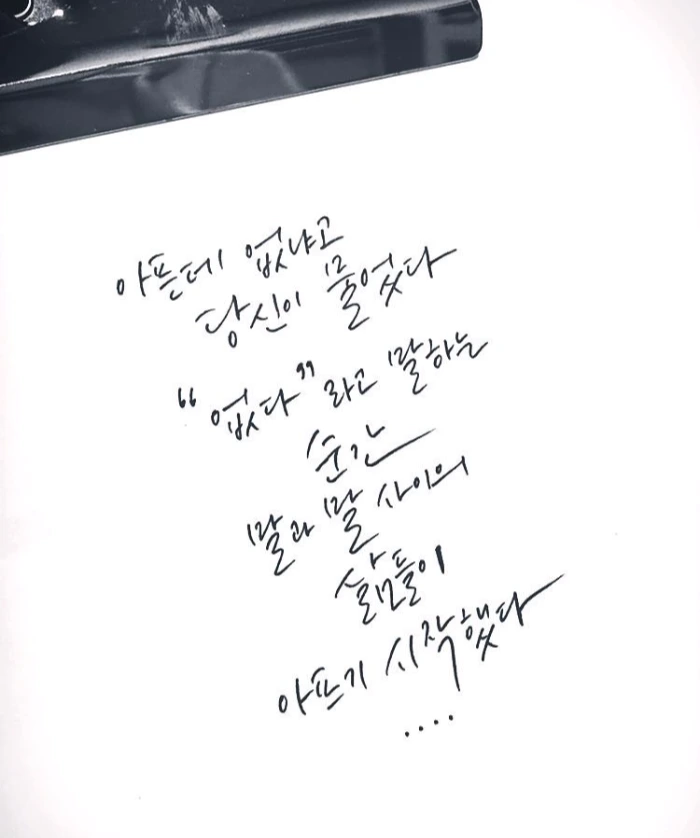 아픈데 없냐고
당신이 물었다
“없다”라고 말하는
순간
말과 말 사이의
삶들이
아프기 시작했다
....